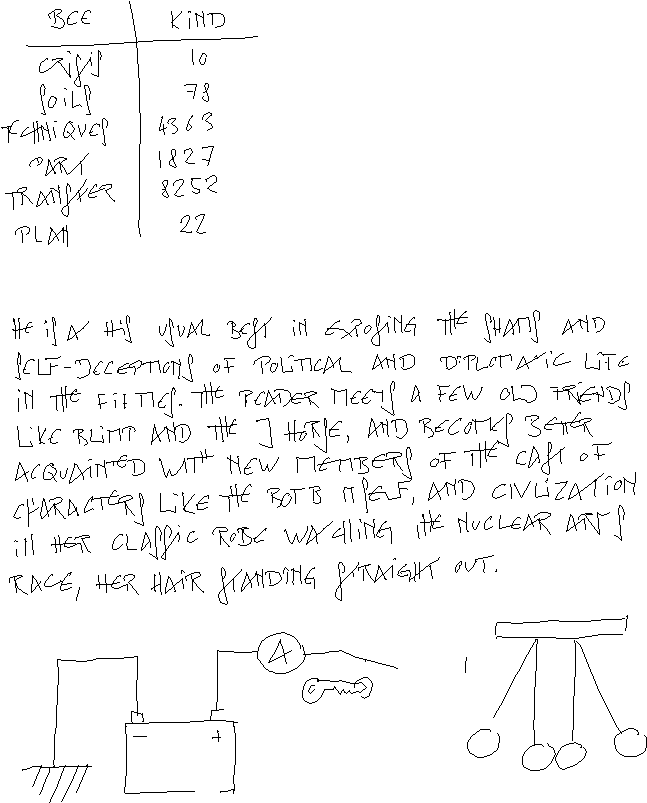 BCE KIND
CRISIS 10
SOILS 78
TECHNIQUES 4363
PART 1827
TRANSFER 8252
PLAN 22
HE IS A HIS USUAL BEST IN EXPOSING THE SHAMS AND
SELF-DECEPTIONS OF POLITICAL AND DIPLOMATIC LIFE
IN THE FIFTIES. THE READER MEETS A FEW OLD FRIENDS
LIKE BLIMP AND THE HORSE, AND BECOMES BETTER
ACQUAINTED WITH NEW MEMBERS OF THE CAST OF
CHARACTERS LIKE THE BOMB ITSELF, AND CIVILIZATION
IN HER CLASSIC ROBE WATCHING THE NUCLEAR ARMS
RACE, HER HAIR STANDING STRAIGHT OUT.
A
- +